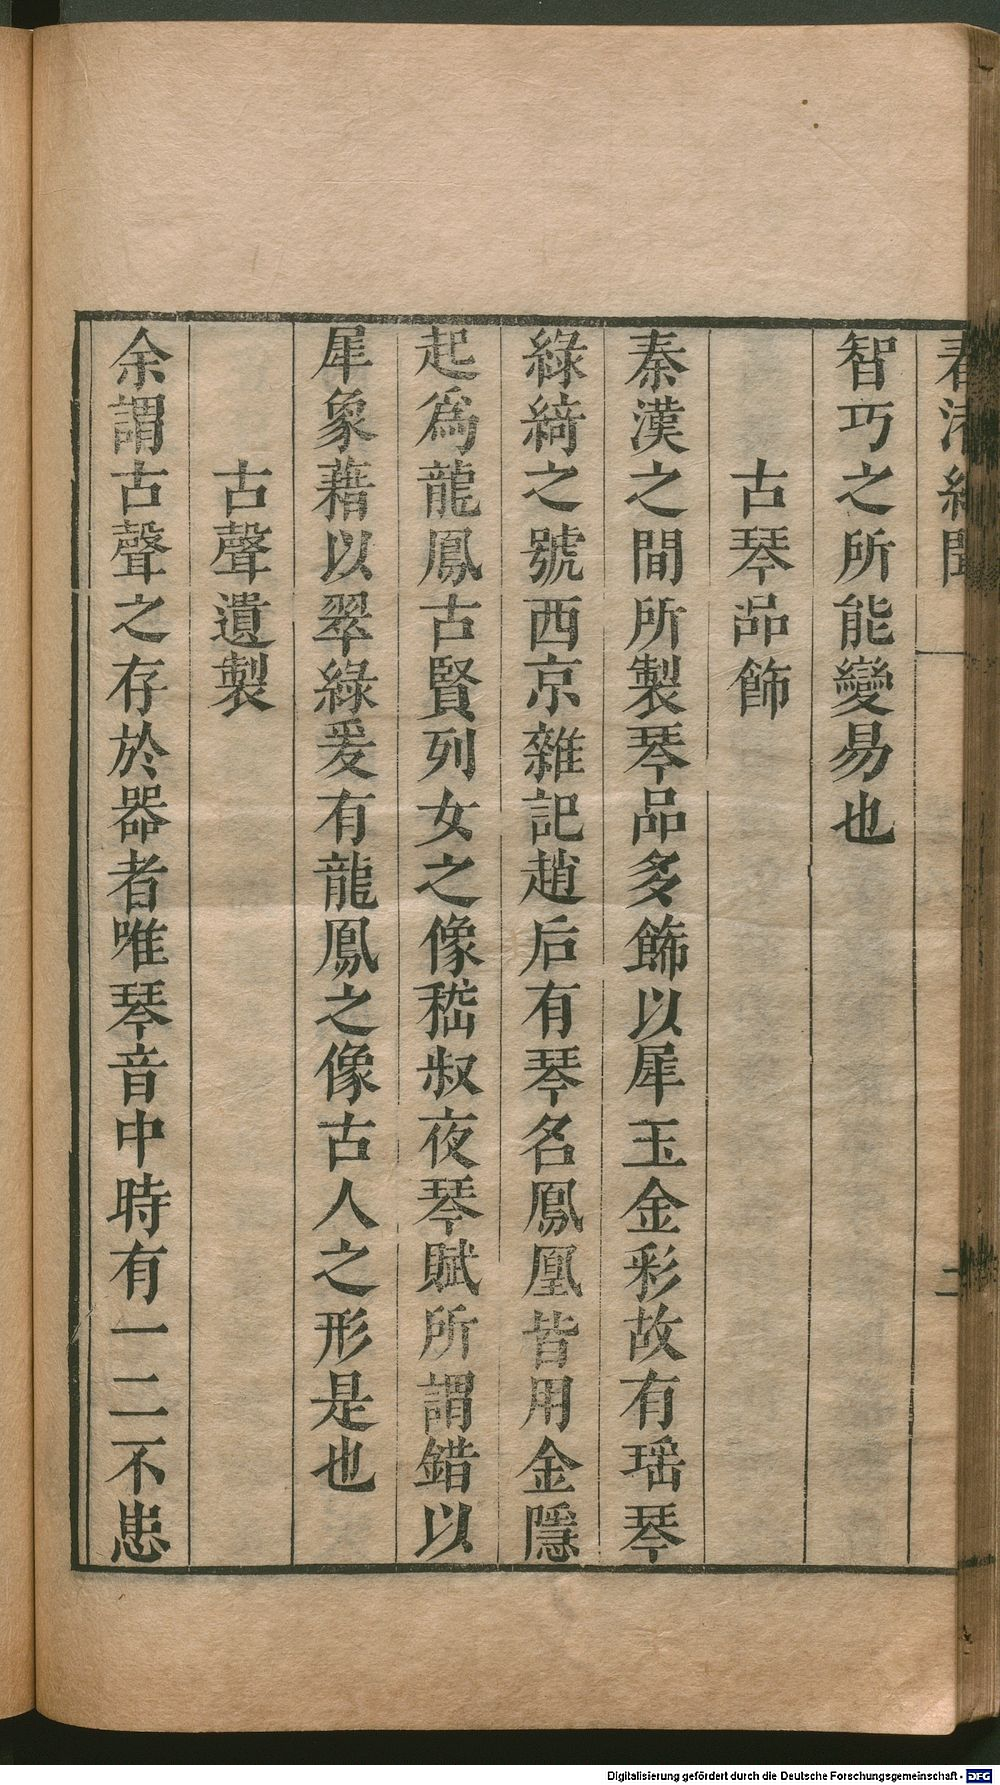 春渚紀聞 二
智巧之所能變易也
古琴品飾
秦漢之間所製琴品多飾以犀玉金彩故有瑶琴
綠綺之號西京雜記趙后有琴名鳳凰皆用金隱
起爲龍鳳古賢列女之像嵇叔夜琴賦所謂錯以
犀象藉以翠綠爰有龍鳳之像古人之形是也
古聲遺製
余謂古聲之存於器者唯琴音中時有一二不患
Digitalisierung gefördert durch die Deutsche Forschungsgemeinschaft - DFG